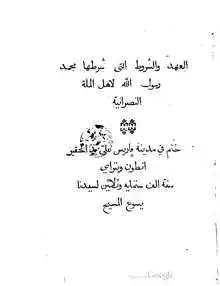 العهد والشروط التى شرطها محمد
رسول الله لاهل الملة
النصرانية
ختم في مدينة پاريس على يد الحقير
انطون ويتراي
سنة الف ستمايه وثلاثين لسيدنا
يسوع المسيح
Google